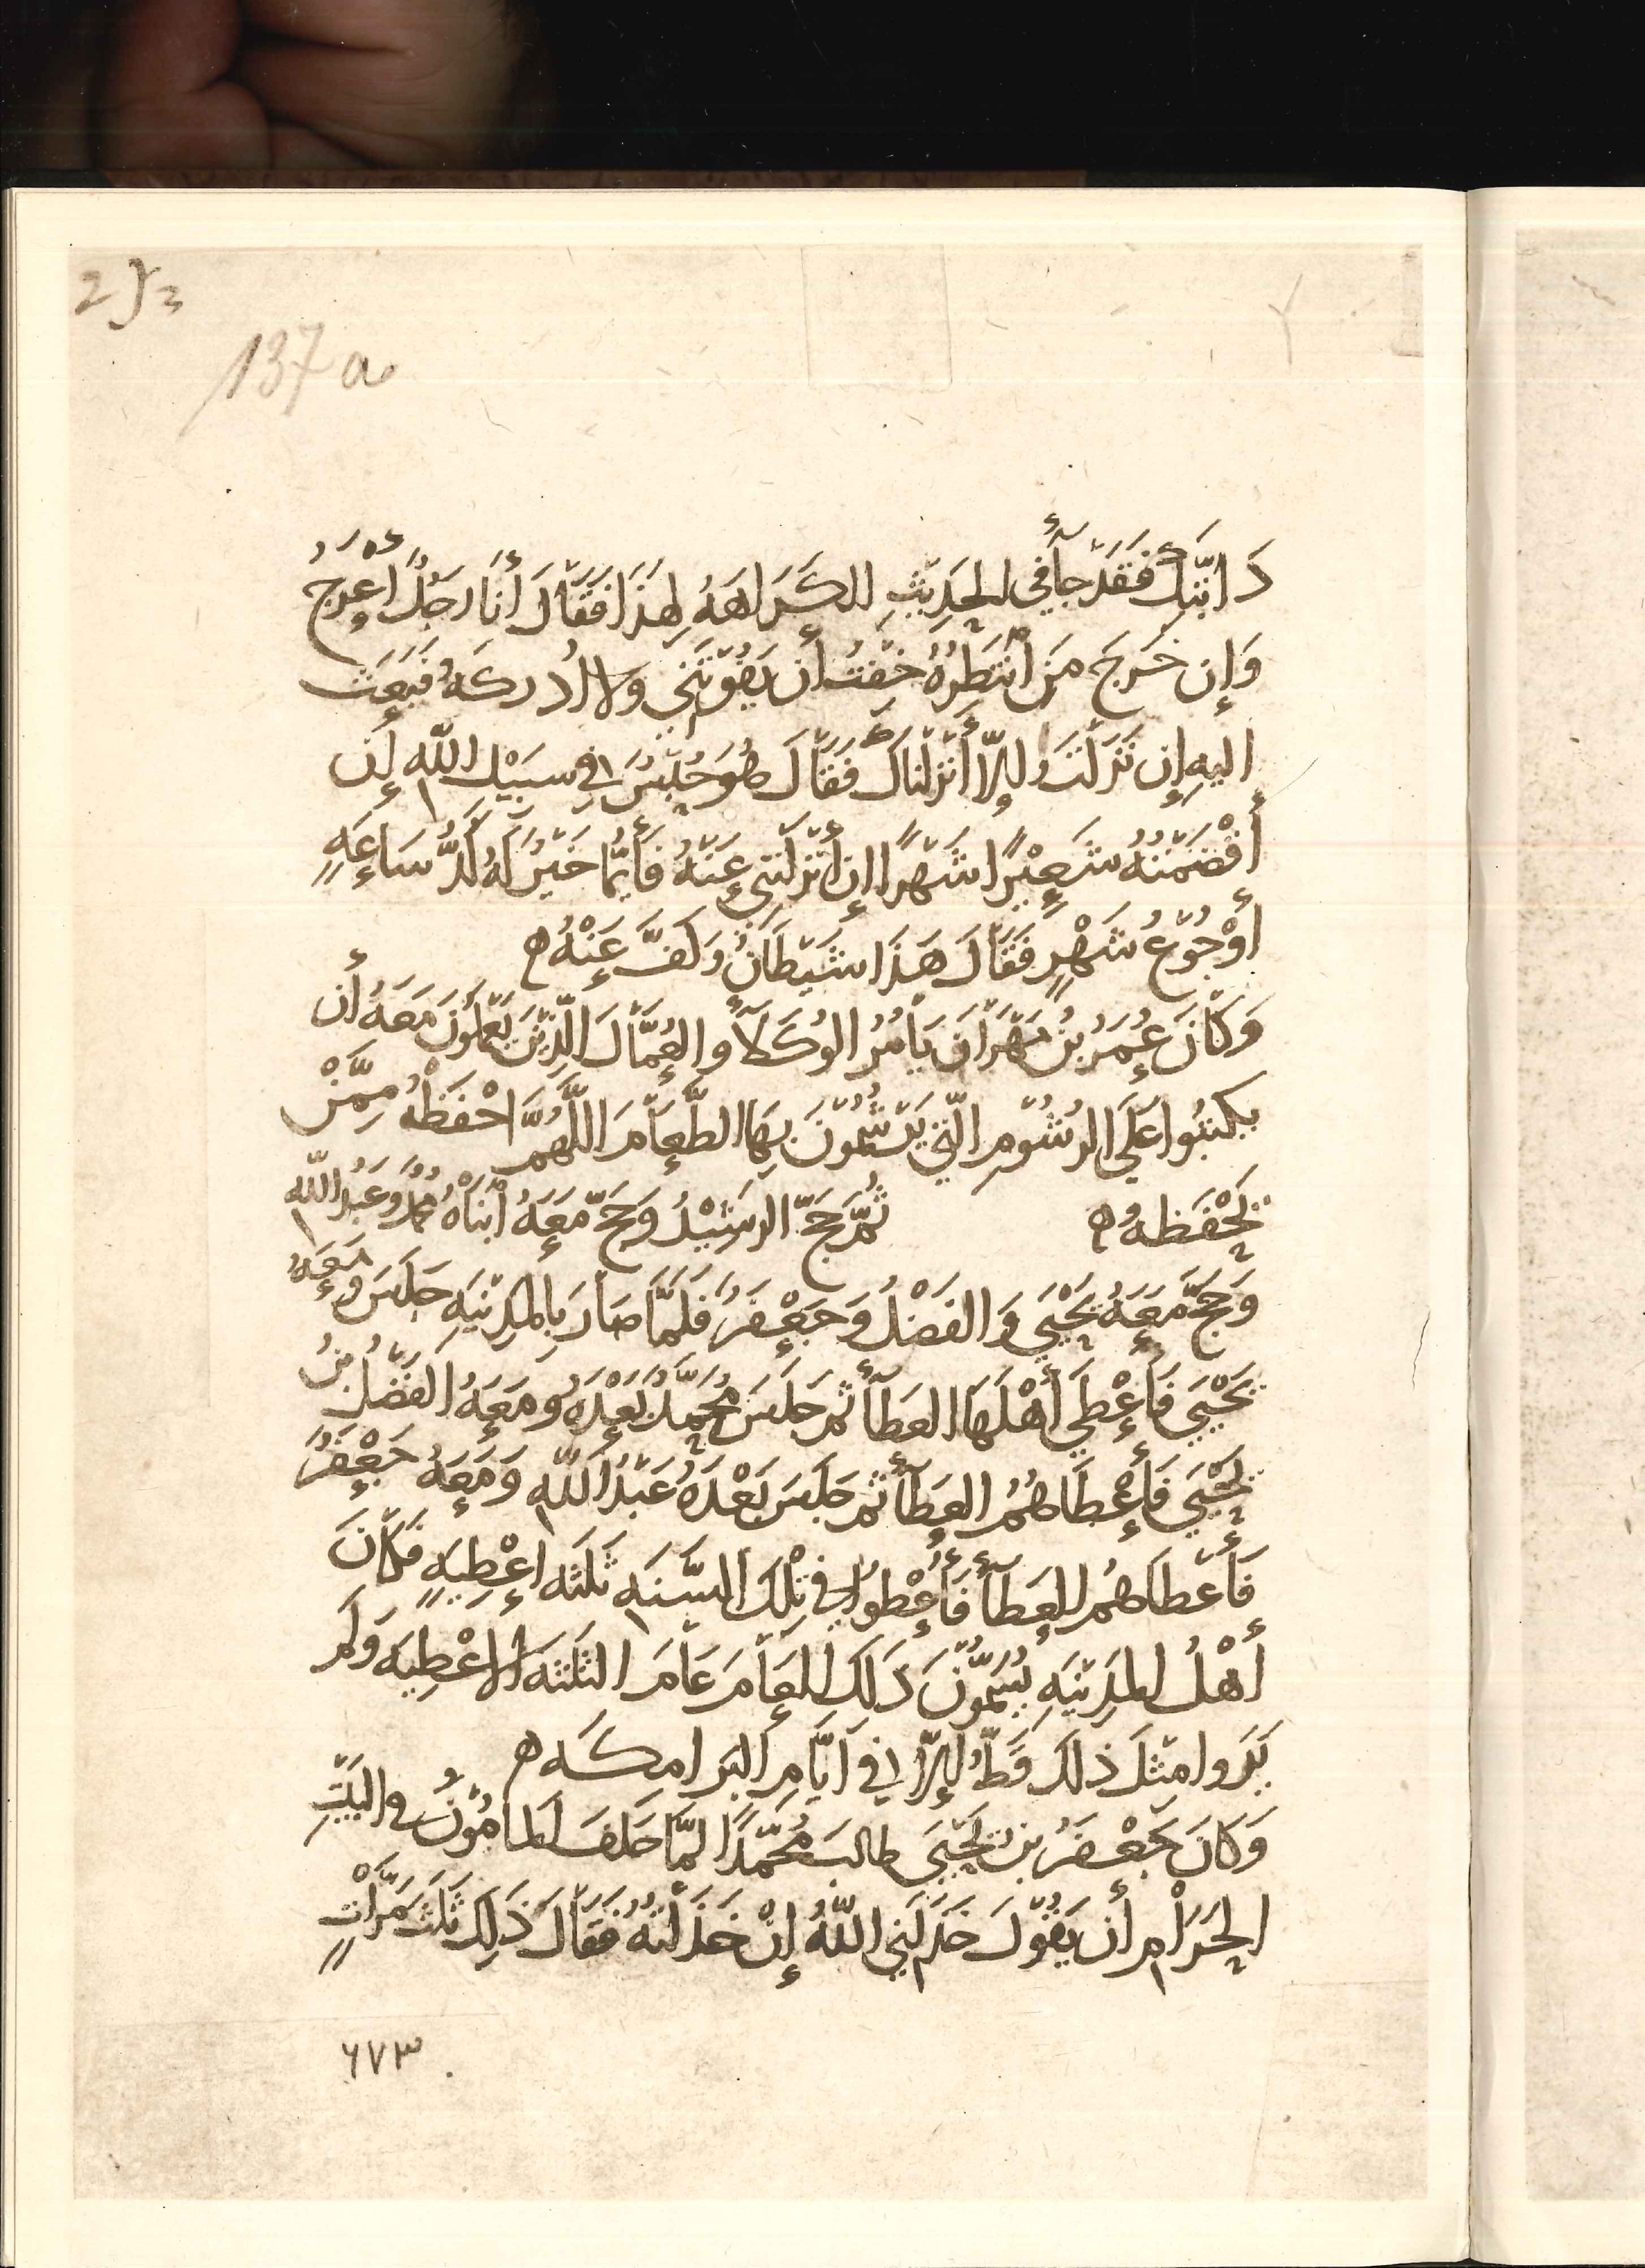 137a
دَابَّتِكَ فَقَد جَآءَ فِي الحَدِيْثِ الكَرَاهَهُ لِهَذَا فَقَالَ أَنَا رَجُلٌ أَعْرَجُ
وَإِن خَرَجَ مَن أَنْتَظِرُهُ خِفْتُ أَن يَفُوْتَنِي وَلا أُدرِكَهُ فَبَعَثَ
اليهِ إِن نَزَلتَ وَإِلّا أَنْزَلنَاكَ فَقَالَ هُوَ حَبِيْسٌ فِي سَبِيْلِ اللهِ إِن
أَقْضَمْتُهُ شَعِيْرًا شَهْرًا إِن أَنْزَلتَنِي عَنْهُ فَأَيُّمَا خَيْرٌ لَهُ كَدُّ سَاعَهٍ
أَوْ جُوْعُ شَهْرٍ فَقَالَ هَذَا شَيْطَانٌ وَكَفَّ عَنْهُ ه
وَكَانَ عُمَرُ بنُ مَهْرَانَ يَأْمُرُ الوُكَلآءَ والعُمَّالَ الَّذِيْنَ يَعمَلُونَ مَعَهُ أَن
يكتبُوا عَلَى الرُشُوْمِ الَّتِي يَرْشُمُونَ بِهَا الطَّعَامَ اللَّهُمَّ احْفَظْهُ مِمَّنْ
يَحْفَظهُ ه ثُمَّ حَجَّ الرشِيْدُ وَحَجَّ مَعَهُ ابْنَاهُ مُحَمَّدٌ وَعَبْدُ اللهِ
وَحَجَّ مَعَهُ يَحْيَى وَالفَضْلُ وَجَعْفَرٌ فَلَمَّا صَارَ بِالمَدِيْنَهِ جَلَسَ وَمَعَهُ
يَحْيَى فَأَعْطَى أَهْلَهَا العَطَآءَ ثم جَلَسَ مُحَمَّدٌ بَعْدَهُ وَمَعَهُ الفَضْلُ بنُ
يَحْيَى فَأَعْطَاهُمُ العَطَآءَ ثم جَلَسَ بَعْدَهُ عَبْدُ اللهِ وَمَعَهُ جَعْفَرٌ
فَأَعْطَاهُم العَطَآءَ فَأُعْطُوا فِي تِلْكَ السَّنَهِ ثَلثَه اعْطِيَهٍ فَكَانَ
أَهْلُ المَدِيْنَهِ يُسَمُّوْنَ ذَلِكَ العَامَ عَامَ الثلثَه الاعْطِيَه وَلَم
يَرَوا مِثْلَ ذلكَ قَطُّ إِلّا فِي أَيَّامِ البَرامكَه ه
وَكَانَ جَعْفَرُ بنُ يَحْيَى طالبَ مُحَمَّدًا لمَّا حَلَفَ لِلمَأمُوْنِ فِي البَيْتِ
الحَرَامِ أَن يَقُوْلَ خَذَلَنِي اللهُ إِنْ خَذَلْتُهُ فَقَالَ ذَلِكَ ثَلَثَ مَرَّاتٍ
٦٧٣